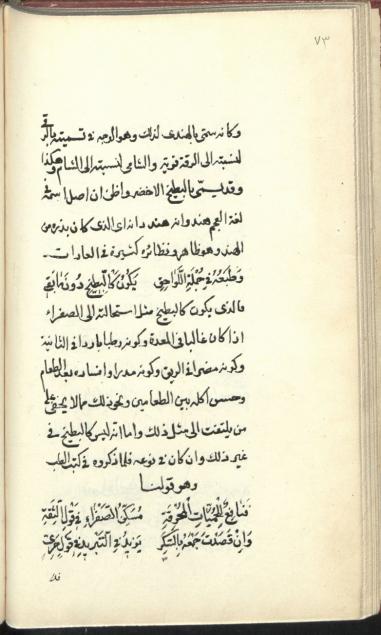 ٧٣
وكانه سمى بالهندى لذلك وهو الوجه فى تسميته بالرقى
لنسبته الى الرقة قرية والشامى لنسبته الى الشام وهكذا
وقد يسمى بالبطيخ الاخضر واظن ان اصل اسمه فى
لغة العجم هندوانه هند دانه اى الذى كان بذره من
الهند وهو ظاهر ونظائره كثيرة فى العادات
وَطَبْعُهُ فِى جُمْلَةِ اللَّوَاحِقِ يَكُونُ كَالْبِطِّيخِ دُونَ
فالذى يكون كالبطيخ مثل استحالته الى الصفراء
اذا كان غالبا فى المعدة وكونه رطبا باردا فى الثانية
وكونه مضرا فى الريق وكونه مدرا وافساده بعد الطعام
وحسن اكله بين الطعامين ونحو ذلك مما لا يخفى على
من يلتفت الى مثل ذلك واما انه ليس كالبطيخ فى
غير ذلك وان كان فى نوعه فلما ذكروه فى كتب الطب
وهو قولنا
فَنَافِعٌ لِلْحُمِّيَاتِ الْمُحْرِقَةِ مُسَكِّنُ الصَّفْرَاءِ فِى قَوْلِ الثِّقَةِ
وَاِنْ قَصَدْتَ جَمْعَهُ بِالسُّكَّرِ يَزِيدُ فِى التَّبْرِيدِ فِى قَوْلٍ